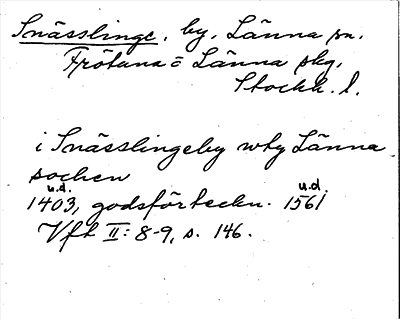 Snässlinge, by, Länna sn,
Frötuna o Länna skg,
Stockh. l.
i Snässlingeby wtj Länna
sochen
u.d. u.d.
1403, godsförteckn. 1561
Vft II: 8-9, s. 146.